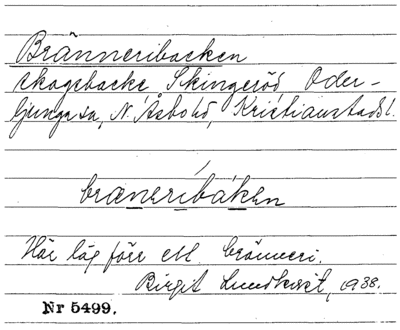 Bränneribacken
skogsbacke, Skingeröd, Oder-
ljunga sn, N. Åsbo hd, Kristianstads l.
bræneribáken
Här låg förr ett bränneri.
Birgit Lundkvist, 1938.
Nr 5499.